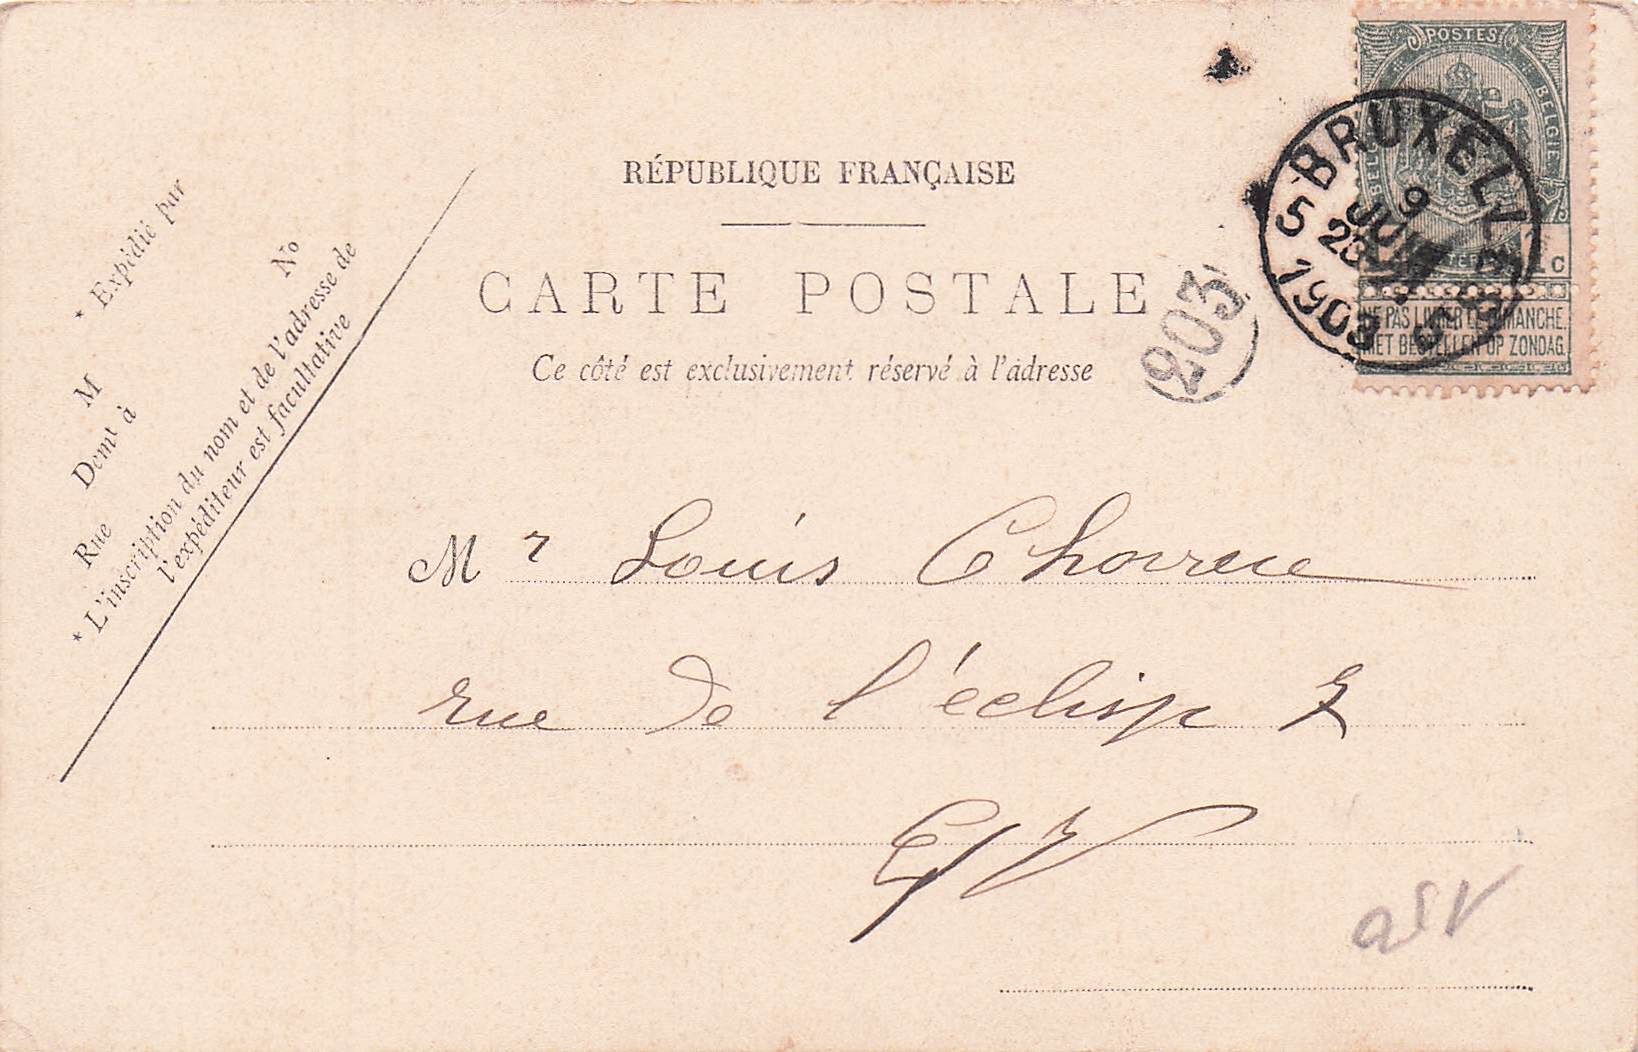 RÉPUBLIQUE FRANÇAISE
CARTE POSTALE
Ce côté est exclusivement réservé à l'adresse
* Expédié par
M
Demt à
Rue No
* L'inscription du nom et de l'adresse de
l'expéditeur est facultative
POSTES
BELGIE
1 c
NE PAS LIVRER LE DIMANCHE.
NIET BESTELLEN OP ZONDAG.
BRUXELLES
9
JUIN
23
5
1903
203
Mr Louis
rue de l'éclips
E/V